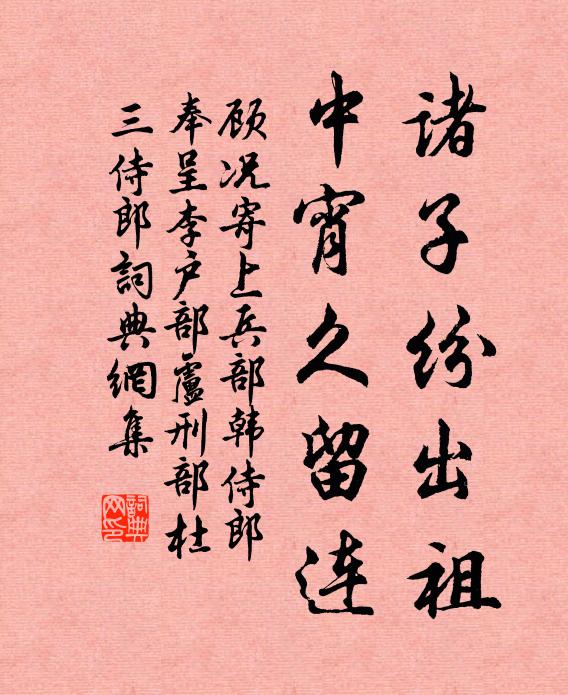 诸子纷出祖
中宵久留连
顾况寄上兵部韩侍郎
奉呈李户部卢刑部杜
三侍郎詞典網集
詞典网印